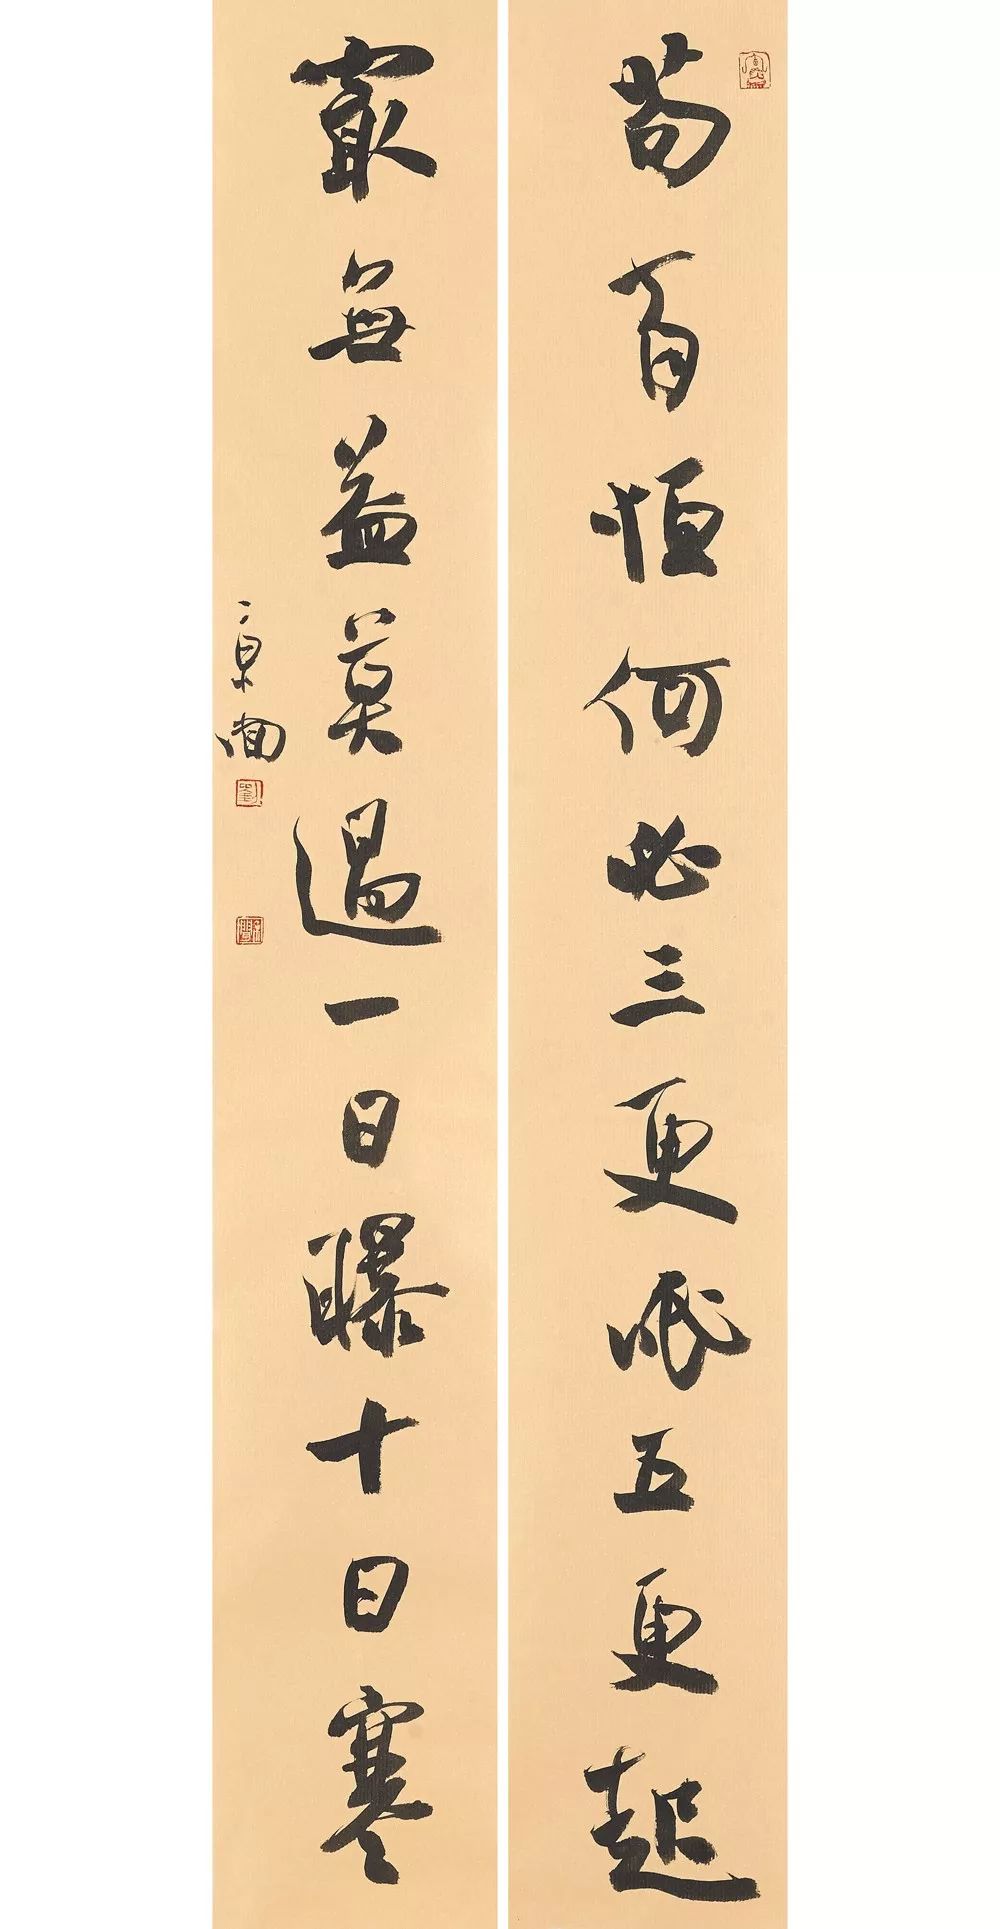 苟有恒何必三更眠五更起
最無益莫過一日曝十日寒
京聞